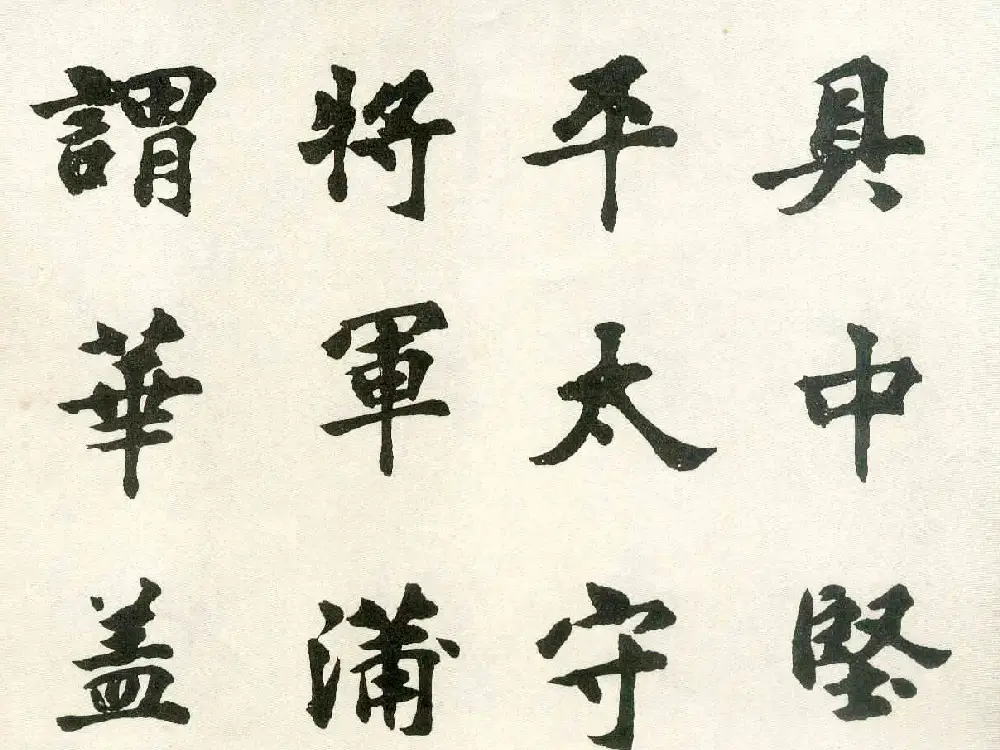 具中堅
平太守
將軍蒲
謂華盖